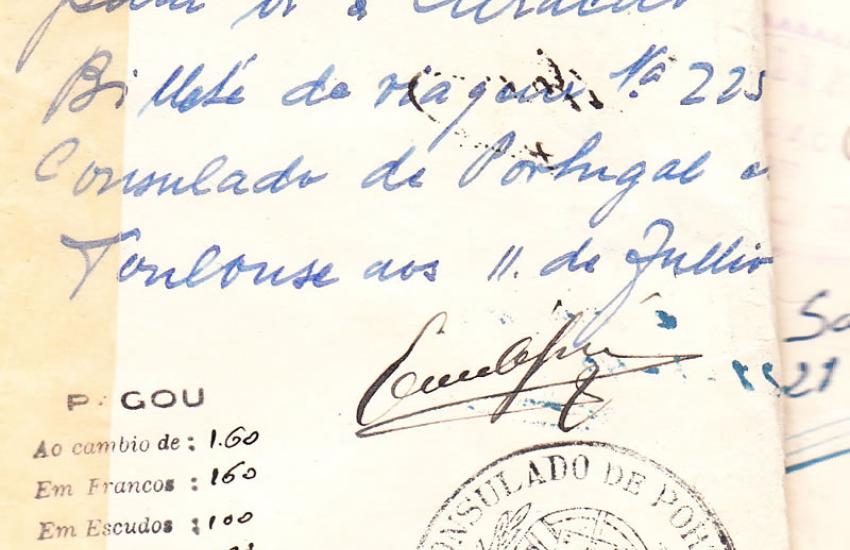 Billete de viagem Nº 225
Consulado de Portugal
Toulouse aos 11 de Jullio
PAGOU
Ao cambio de : 1.60
Em Francos : 160
Em Escudos : 100
CONSULADO DE POR
21